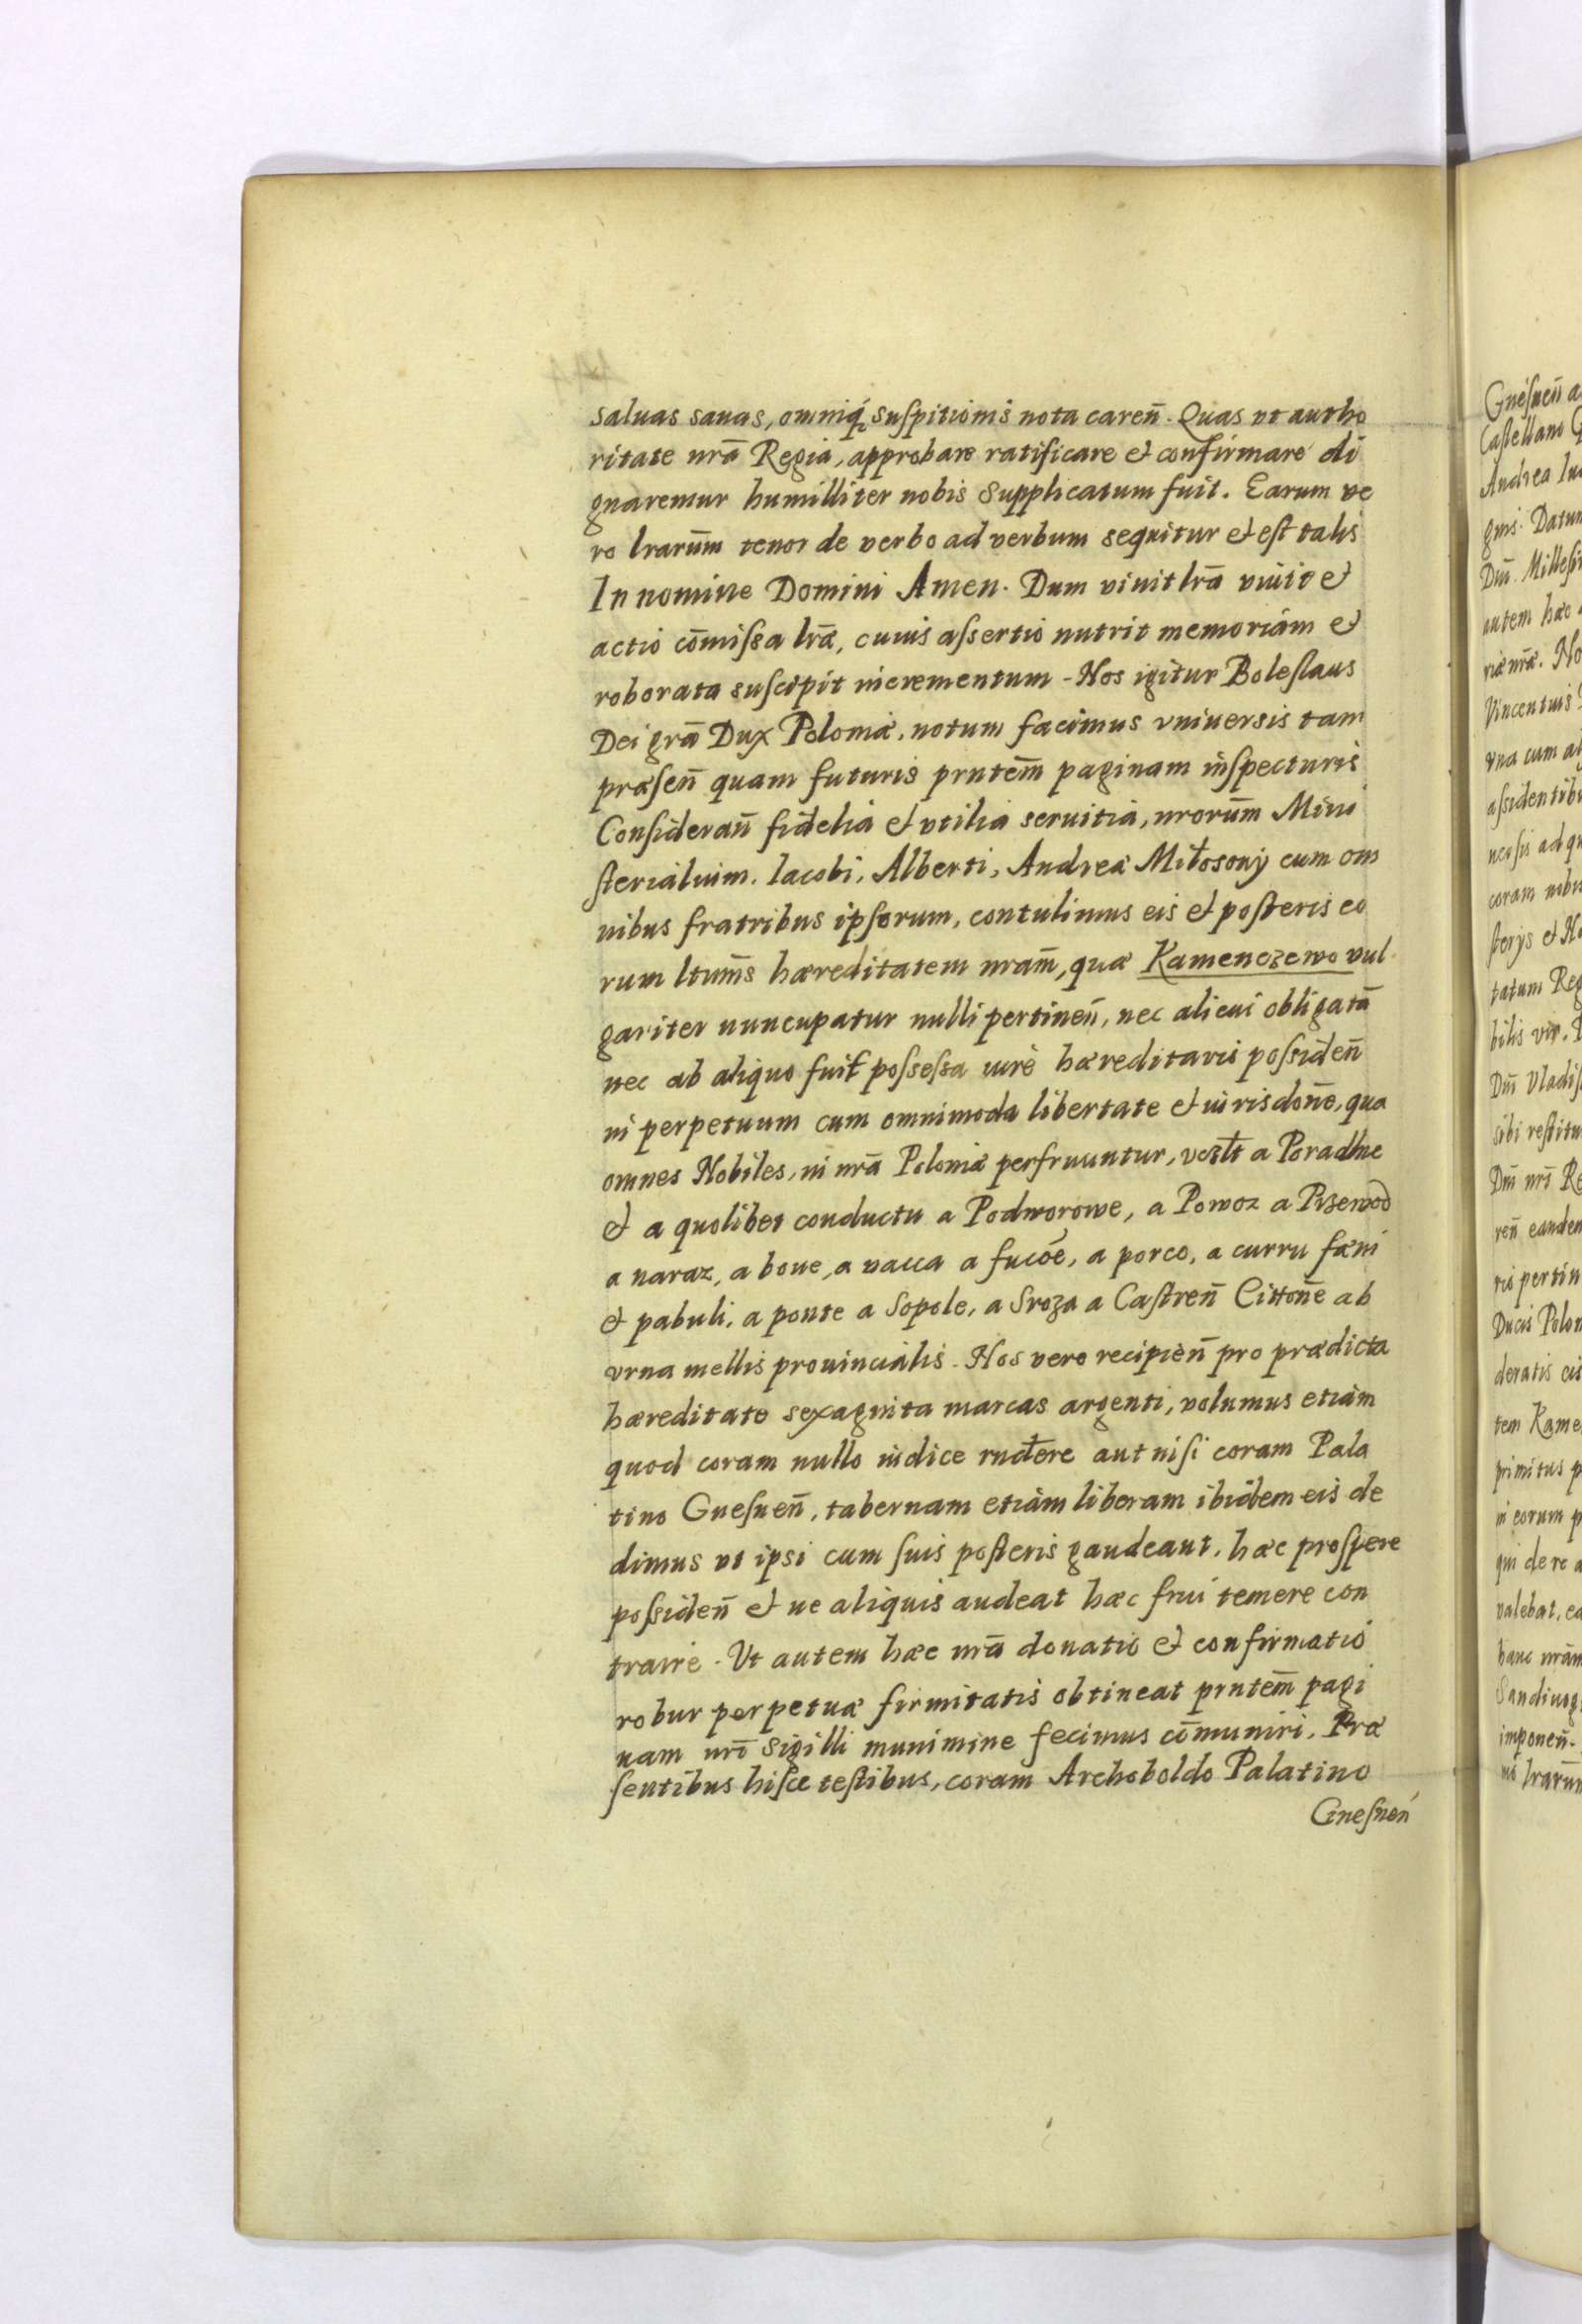 saluas sanas, omniq́ suſpitionis nota careñ. Quas vt autho
ritate nrã Regia, approbare ratificare et confirmare di
gnaremur humilliter nobis supplicatum fuit. Earum ve
ro lrarum̃ tenor de verbo ad verbum sequitur et eſt talis
In nomine Domini Amen. Dum viuit lrã viuit et
actio com̃iſsa lræ̃, cuius aſsertio nutrit memoriam et
roborata suſcipit incrementum - Nos igitur Boleſlaus
Dei grã Dux Poloniæ, notum facimus vniuersis tam
præſeñ quam futuris prntem̃ paginam inſpecturis
Conſiderañ fidelia et vtilia seruitia, nrorum̃ Mini
ſterialium. Iacobi, Alberti, Andreæ Miłosonÿ cum om
nibus fratribus ipſorum, contulimus eis et poſteris eo
rum ltum̃s hæreditatem nram̃, quæ Kamenczewo vul
gariter nuncupatur nulli pertineñ, nec alicui obligatã
nec ab aliquo fuit poſseſsa iure hæreditario poſsideñ
in perpetuum cum omnimoda libertate et iurisdoñe, qua
omnes Nobiles, in nrã Polonia perfruuntur, vczlt a Poradlne
et a quolibet conductu a Podworowe, a Powoz a Przewod
a naraz, a boue, a vacca a fucoe, a porco, a curru fæni
et pabuli, a ponte a Sopole, a Sroza a Caſtreñ Cittoñe ab
vrna mellis prouincialis. Nos vero recipieñ pro prædicta
hæreditate sexaginta marcas argenti, volumus etiam
quod coram nullo iudice rndere aut niſi coram Pala
tino Gneſneñ, tabernam etiam liberam ibidem eis de
dimus vt ipsi cum ſuis poſteris gaudeant, hæc proſpere
poſsideñ et ne aliquis audeat hæc frui temere con
traire. Vt autem hæc nrã donatio et confirmatio
robur perpetuæ firmitatis obtineat prntem̃ pagi
nam nrĩ Sigilli munimine fecimus com̃uniri. Præ
ſentibus hiſce teſtibus, coram Archeboldo Palatino
Gneſnen